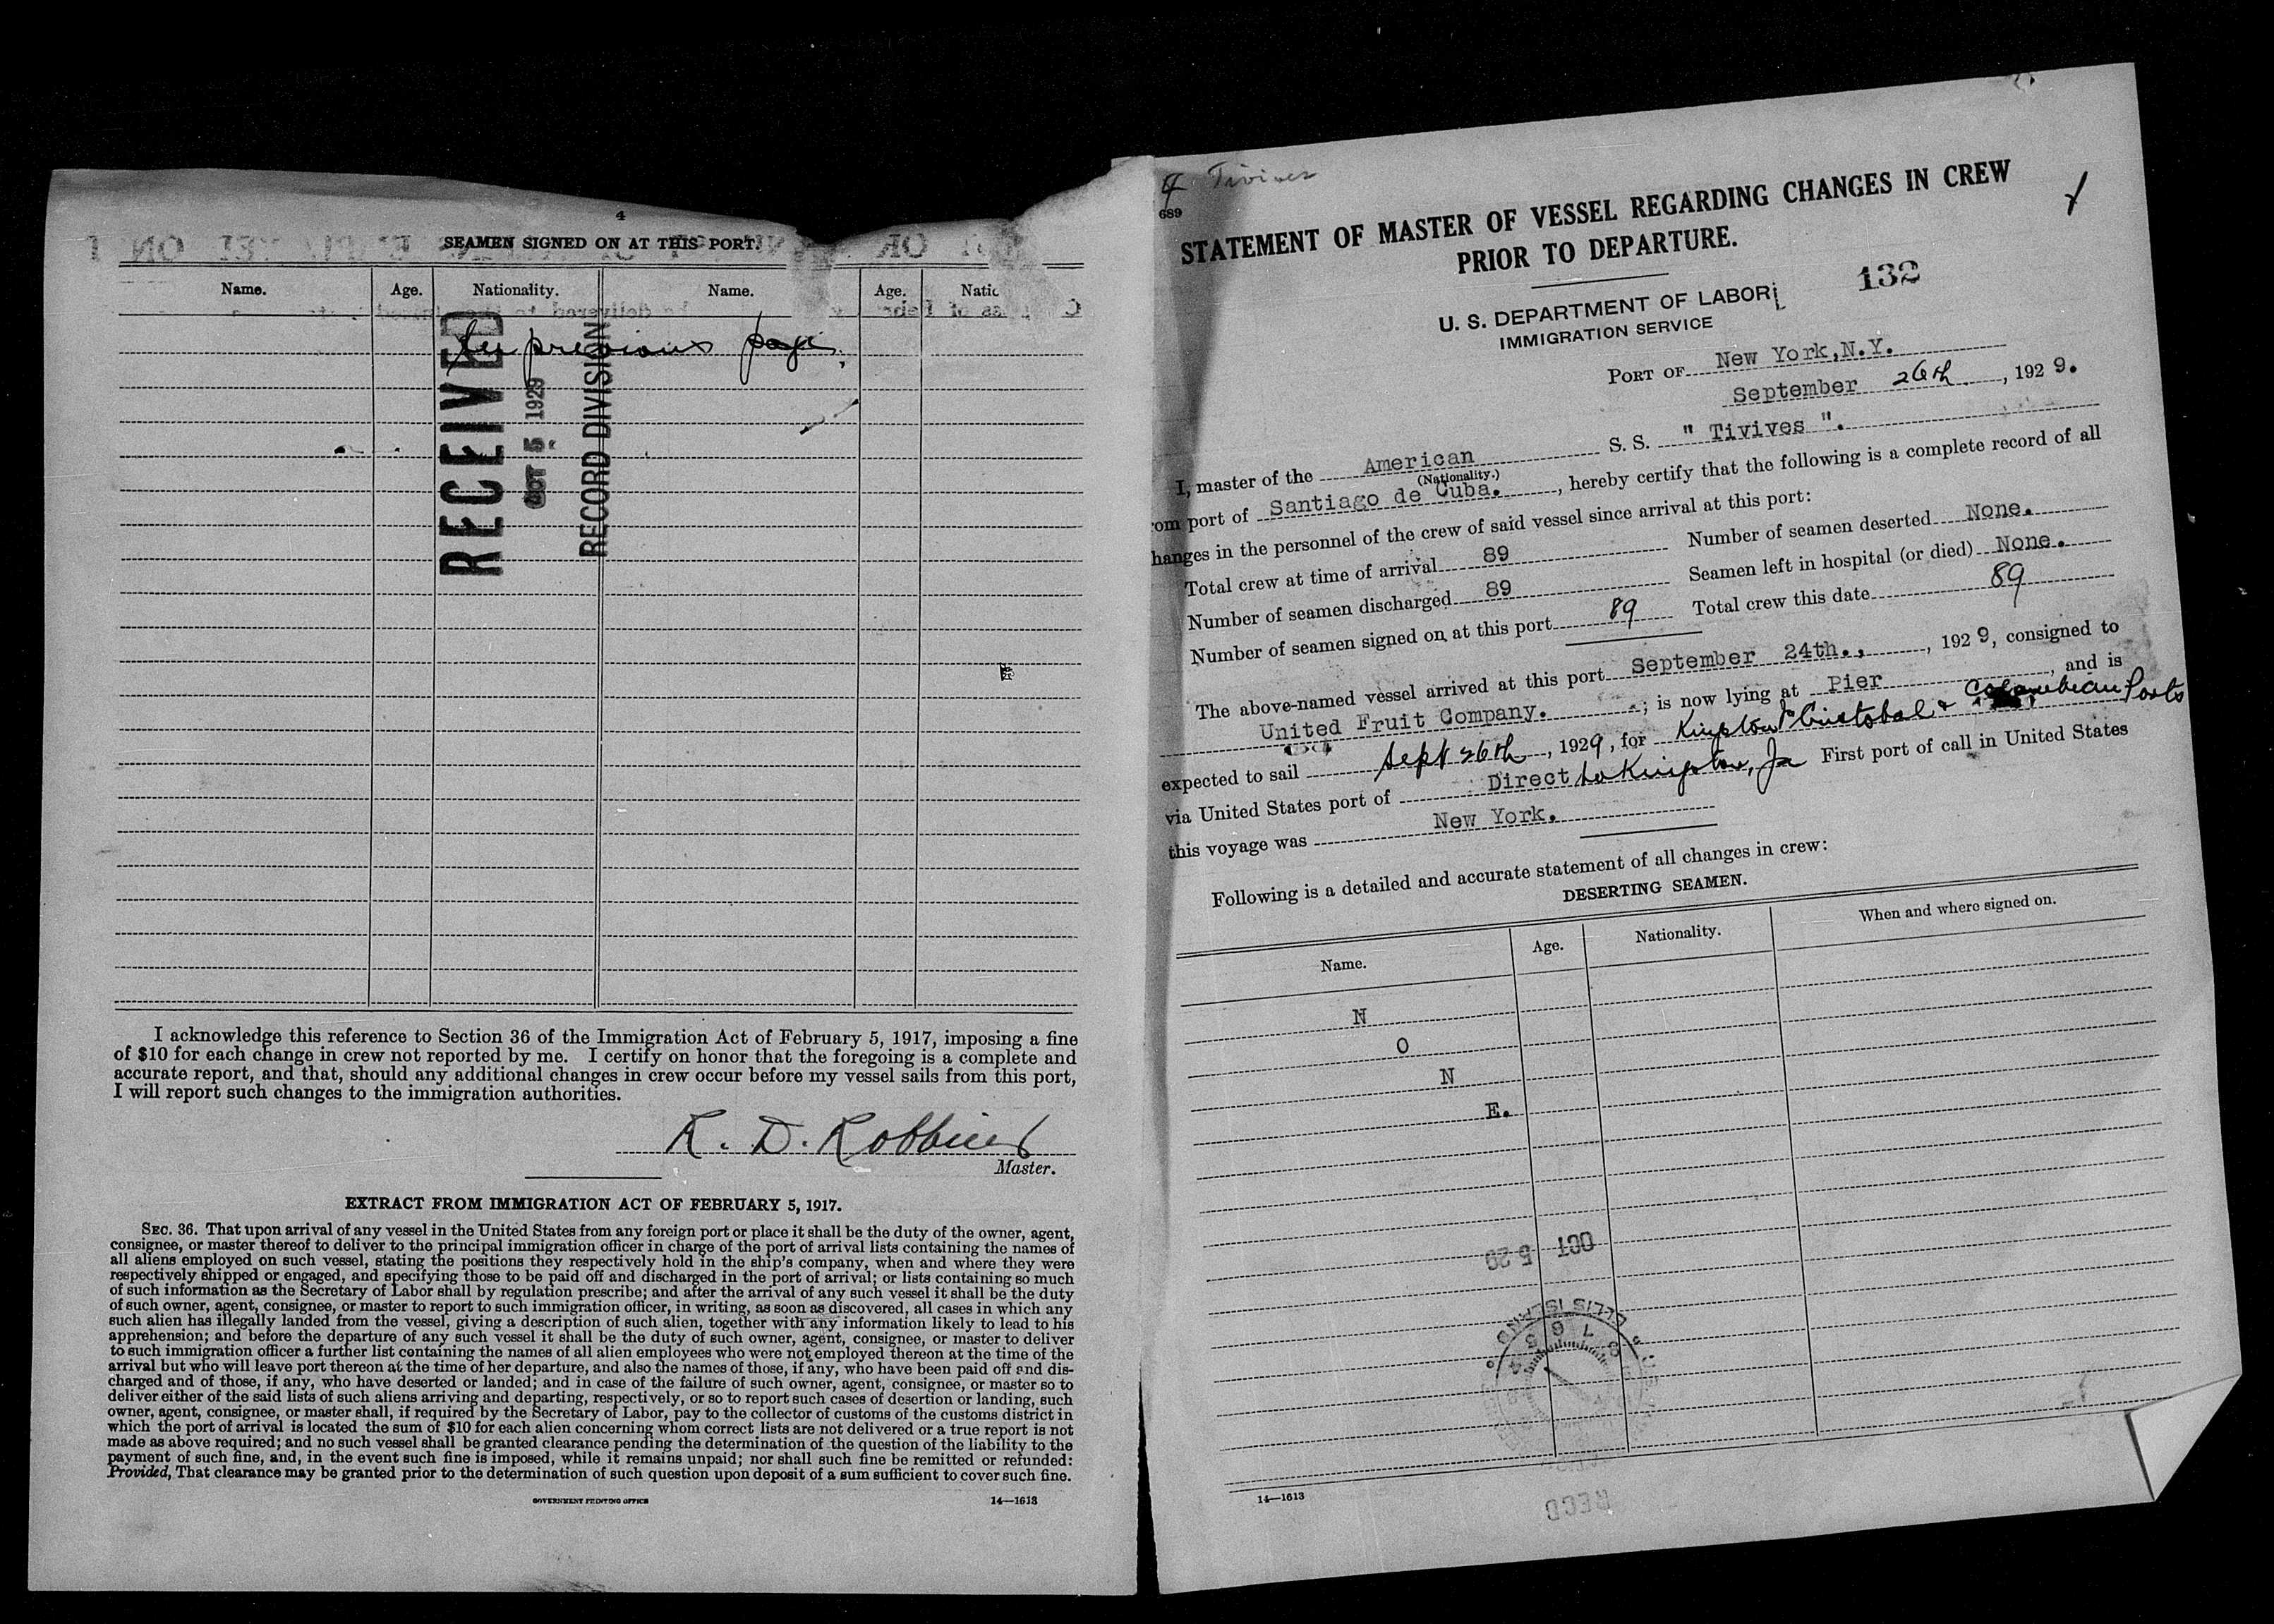 4
SEAMEN SIGNED ON AT THIS PORT.
Name. Age. Nationality. Name. Age. Natic
previous page
RECEIVED
OCT 5 1929
RECORD DIVISION
I acknowledge this reference to Section 36 of the Immigration Act of February 5, 1917, imposing a fine
of $10 for each change in crew not reported by me. I certify on honor that the foregoing is a complete and
accurate report, and that, should any additional changes in crew occur before my vessel sails from this port,
I will report such changes to the immigration authorities.
R. D. Robbins
Master.
EXTRACT FROM IMMIGRATION ACT OF FEBRUARY 5, 1917.
SEC. 36. That upon arrival of any vessel in the United States from any foreign port or place it shall be the duty of the owner, agent,
consignee, or master thereof to deliver to the principal immigration officer in charge of the port of arrival lists containing the names of
all aliens employed on such vessel, stating the positions they respectively hold in the ship's company, when and where they were
respectively shipped or engaged, and specifying those to be paid off and discharged in the port of arrival; or lists containing so much
of such information as the Secretary of Labor shall by regulation prescribe; and after the arrival of any such vessel it shall be the duty
of such owner, agent, consignee, or master to report to such immigration officer, in writing, as soon as discovered, all cases in which any
such alien has illegally landed from the vessel, giving a description of such alien, together with any information likely to lead to his
apprehension; and before the departure of any such vessel it shall be the duty of such owner, agent, consignee, or master to deliver
to such immigration officer a further list containing the names of all alien employees who were not employed thereon at the time of the
arrival but who will leave port thereon at the time of her departure, and also the names of those, if any, who have been paid off and dis-
charged and of those, if any, who have deserted or landed; and in case of the failure of such owner, agent, consignee, or master so to
deliver either of the said lists of such aliens arriving and departing, respectively, or so to report such cases of desertion or landing, such
owner, agent, consignee, or master shall, if required by the Secretary of Labor, pay to the collector of customs of the customs district in
which the port of arrival is located the sum of $10 for each alien concerning whom correct lists are not delivered or a true report is not
made as above required; and no such vessel shall be granted clearance pending the determination of the question of the liability to the
payment of such fine, and, in the event such fine is imposed, while it remains unpaid; nor shall such fine be remitted or refunded:
Provided, That clearance may be granted prior to the determination of such question upon deposit of a sum sufficient to cover such fine.
GOVERNMENT PRINTING OFFICE 14—1613
Tivives
689
STATEMENT OF MASTER OF VESSEL REGARDING CHANGES IN CREW
PRIOR TO DEPARTURE.
U. S. DEPARTMENT OF LABOR
IMMIGRATION SERVICE
132
PORT OF New York, N.Y.
September 26th, 1929.
I, master of the American S. S. " Tivives ".
(Nationality.)
om port of Santiago de Cuba. , hereby certify that the following is a complete record of all
hanges in the personnel of the crew of said vessel since arrival at this port:
Total crew at time of arrival 89 Number of seamen deserted None.
Number of seamen discharged 89 Seamen left in hospital (or died) None.
Number of seamen signed on at this port 89 Total crew this date 89
The above-named vessel arrived at this port September 24th., , 1929, consigned to
United Fruit Company. ; is now lying at Pier , and is
expected to sail Sept 26th , 1929, for Kingston Cristobal & Ports
via United States port of Direct to Kingston, Ja First port of call in United States
this voyage was New York.
Following is a detailed and accurate statement of all changes in crew:
DESERTING SEAMEN.
Name. Age. Nationality. When and where signed on.
N
O
N
E.
OCT 5 29
ELLIS ISLAND
RECD
14—1613